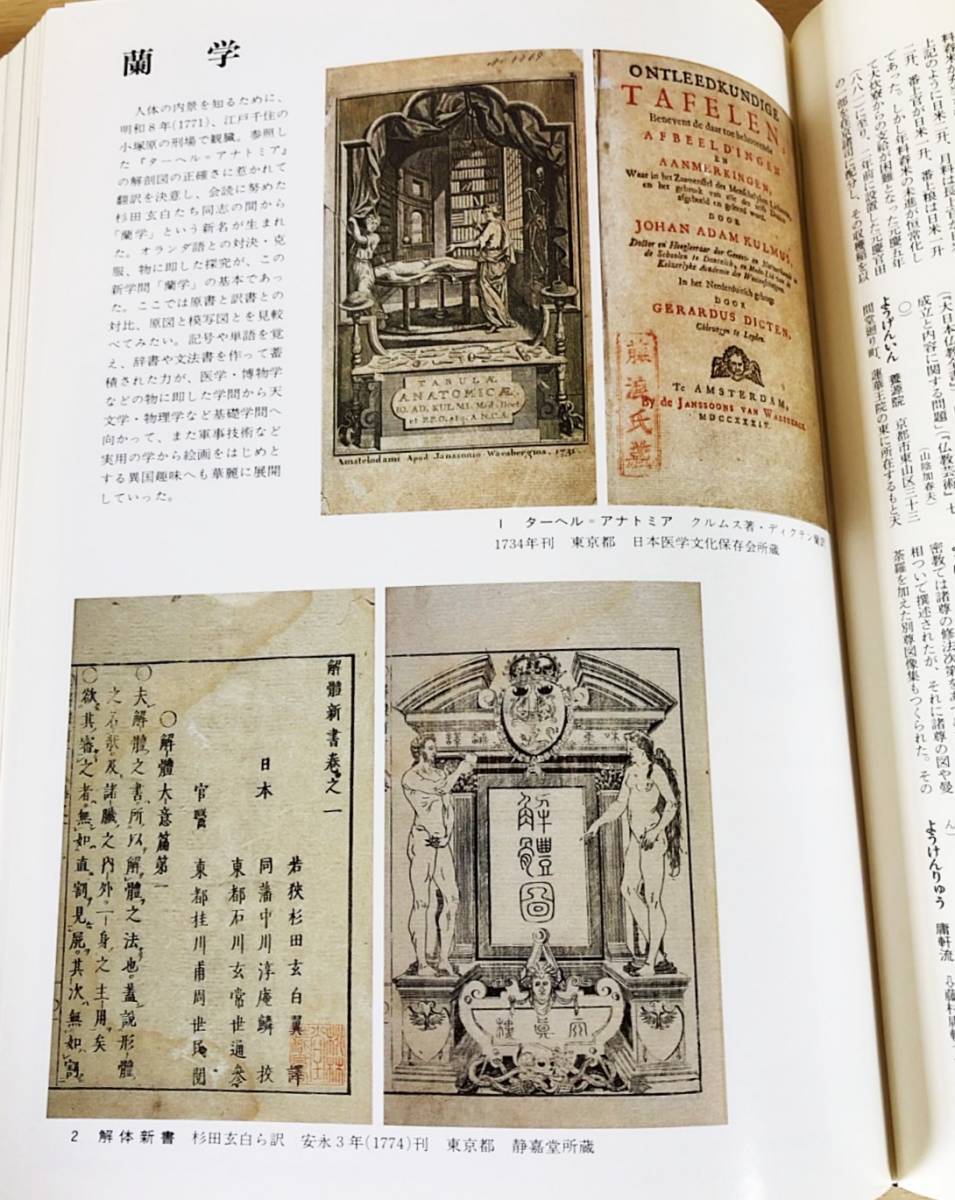 蘭学
人体の内景を知るために、
明和8年(1771)、江戸千住の
小塚原の刑場で観臓。参照し
た『ターヘル=アナトミア』
の解剖図の正確さに惹かれて
翻訳を決意し、会読に努めた
杉田玄白たち同志の間から
「蘭学」という新名が生まれ
た。オランダ語との対決・克
服、物に即した探究が、この
新学問「蘭学」の基本であっ
た。ここでは原書と訳書との
対比、原図と模写図とを見較
べてみたい。記号や単語を覚
え、辞書や文法書を作って蓄
積された力が、医学・博物学
などの物に即した学問から天
文学・物理学など基礎学問へ
向かって、また軍事技術など
実用の学から絵画をはじめと
する異国趣味へも華麗に展開
していった。
TABULÆ
ANATOMICÆ,
IO. AD. KULMI. Med. Doct
et P.P.O. atq. A.N.C.A.
Amstelodami Apud Janssonio Waesbergios. 1731.
ONTLEEDKUNDIGE
TAFELEN,
Benevens de daar toe behoorende
AFBEELDINGEN
EN
AANMERKINGEN,
Waar in het Zaamenstel des Menschelyken Lichaams,
en het gebruik van alle des zelfs Deelen
afgebeeld en geleerd word.
DOOR
JOHAN ADAM KULMUS,
Doctor en Hoogleeraar der Genees- en Natuurkunde in
de Schoolen te Dantzich, en Medelidt van de
Keizerlyke Academie der Weetenschappen.
In het Neederduitsch gebragt
DOOR
GERARDUS DICTEN,
Chirurgyn te Leyden.
Te AMSTERDAM,
By de JANSSOONS VAN WAESBERGE.
MDCCXXXIV.
1 ターヘル=アナトミア クルムス著・ディクテン蘭訳
1734年刊 東京都 日本医学文化保存会所蔵
解體新書巻之一
日本
若狭 杉田玄白翼 譯
同藩 中川淳庵鱗 校
東都 石川玄常世通 參
官醫 東都 桂川甫周世民 閲
○解體大意篇第一
○夫解體之書所以解體之法也。蓋說形體
之名狀及諸臓之内外一身之主用矣
○欲其審之者。無如直割見屍。其次無如割
解體圖
2 解体新書 杉田玄白ら訳 安永3年(1774)刊 東京都 静嘉堂所蔵
上記のように日米一升、
一升、番上官が日米一升、番上粮は日米一升
であった。しかし年料舂米の未進が恒常化し
て大炊寮からの支給が困難となった元慶五年
(八八一)に至り、二年前に設置した元慶官田
の一部を在京諸司に配分し、その収穫稲を以
成立と内容に関する問題」(『仏教芸術』七
〇) (山陰加春夫)
ようげんいん 養源院 京都市東山区三十三
間堂廻り町、蓮華王院の東に所在するもと天
密教では諸尊の修法次第を
相ついで撰述されたが、それに諸尊の図や曼
荼羅を加えた別尊図像集もつくられた。その
ようけんりゅう 庸軒流